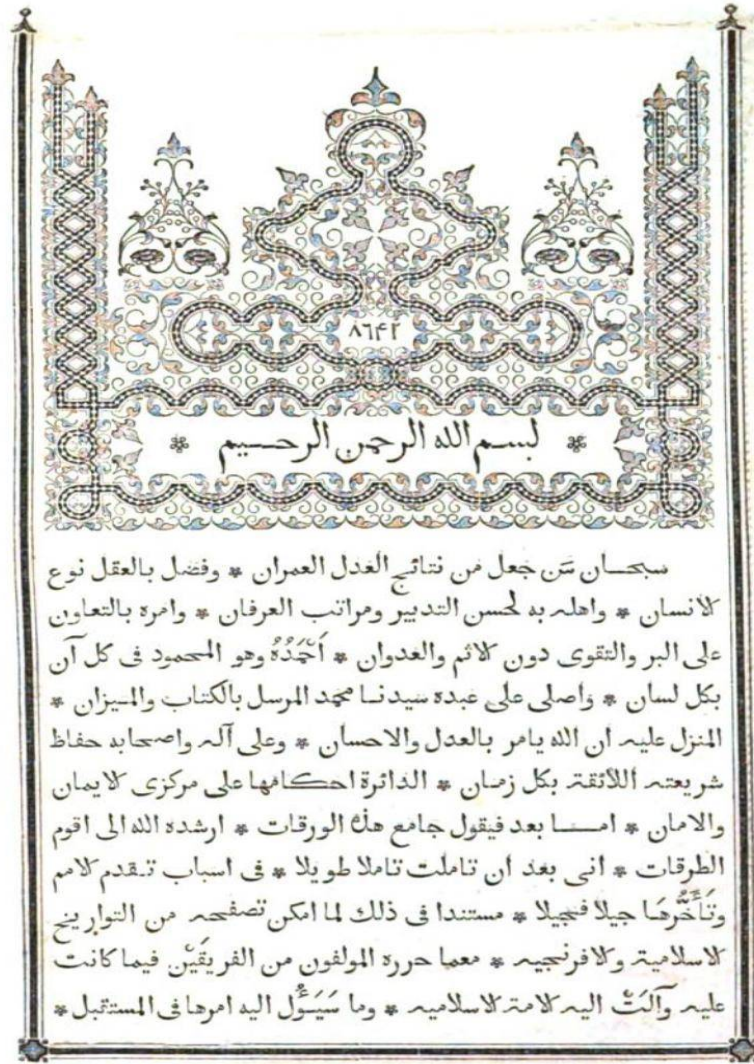 ٨٦٤٢
* بسم الله الرحمن الرحيم *
سبحان من جعل من نتائج العدل العمران * وفضل بالعقل نوع
الانسان * واهله به لحسن التدبير ومراتب العرفان * وامره بالتعاون
على البر والتقوى دون الاثم والعدوان * أَحْمَدُهُ وهو المحمود فى كل آن
بكل لسان * واصلى على عبده سيدنا محمد المرسل بالكتاب والميزان *
المنزل عليه ان الله يامر بالعدل والاحسان * وعلى آله واصحابه حفاظ
شريعته اللائقة بكل زمان * الدائرة احكامها على مركزى الايمان
والامان * امّا بعد فيقول جامع هذه الورقات * ارشده الله الى اقوم
الطرقات * انى بعد ان تاملت تاملا طويلا * فى اسباب تقدم الامم
وتَأَخُّرِهَا جيلا فجيلا * مستندا فى ذلك لما امكن تصفحه من التواريخ
الاسلامية والافرنجيه * معما حرره المولفون من الفريقَيْن فيما كانت
عليه وآلَتْ اليه الامة الاسلاميه * وما سَيَؤُل اليه امرها فى المستقبل *